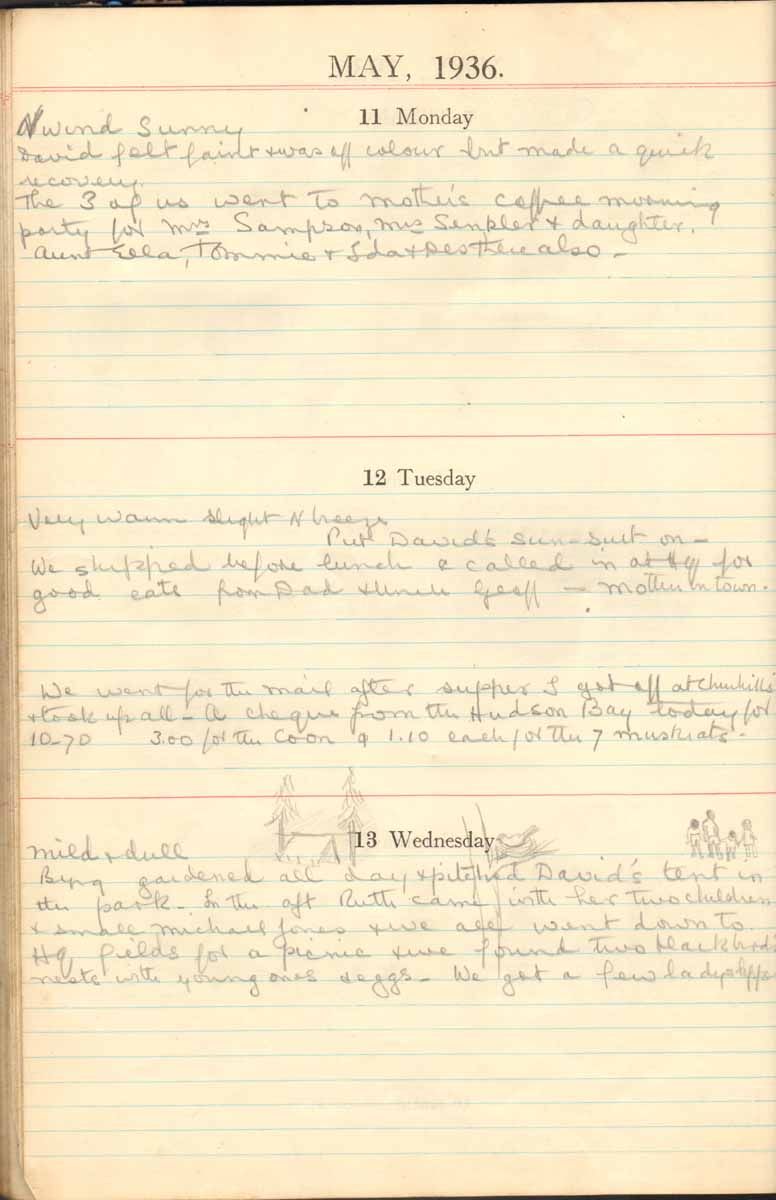 MAY, 1936.
11 Monday
N wind Sunny
David felt faint & was off colour but made a quick
recovery.
The 3 of us went to mother's coffee morning
party for Mrs Sampson, Mrs & daughter.
Aunt Ella, Tommie & Ida & Des there also -
12 Tuesday
Very warm slight N breeze
Put David's sun-suit on -
We skipped before lunch & called in at Hq for
good eats from Dad & Uncle Geoff - Mother in town.
We went for the mail after supper I got off at
& took up all - A cheque from the Hudson Bay today for
10-70 3.00 for the Coon & 1.10 each for the 7 muskrats -
13 Wednesday
Mild & dull
Byng gardened all day & pitched David's tent in
the park - In the aft Ruth came with her two children
& small Michael Jones & we all went down to
Hq fields for a picnic & we found two blackbird's
nests with young ones & eggs - We got a few